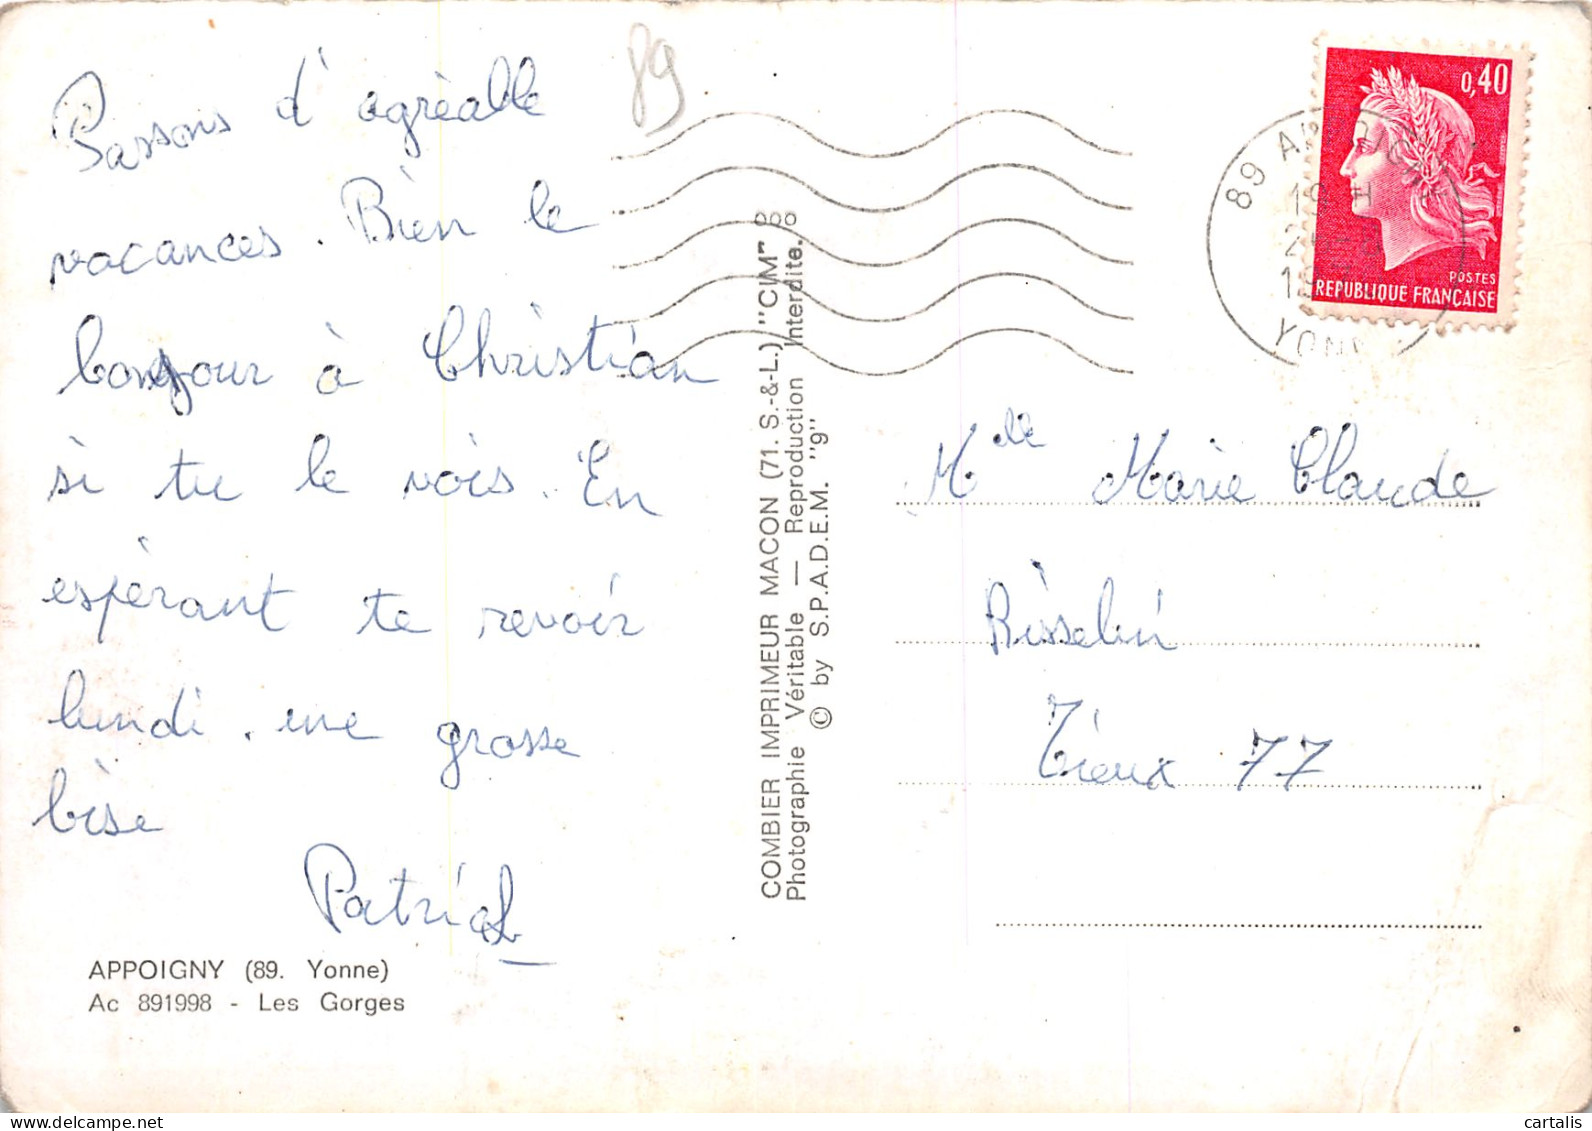 89
Passons d'agréable
vacances. Bien le
bonjour à Christian
si tu le vois. En
espèrant te revoir
lundi. une grosse
bise
Patrick
APPOIGNY (89. Yonne)
Ac 891998 - Les Gorges
COMBIER IMPRIMEUR MACON (71. S.-&-L.) "CIM"
Photographie Véritable — Reproduction Interdite.
© by S.P.A.D.E.M. "9"
0,40
POSTES
REPUBLIQUE FRANÇAISE
89
19 H
YONNE
Mlle Marie Claude
Risselin
Tieux 77
cartalis